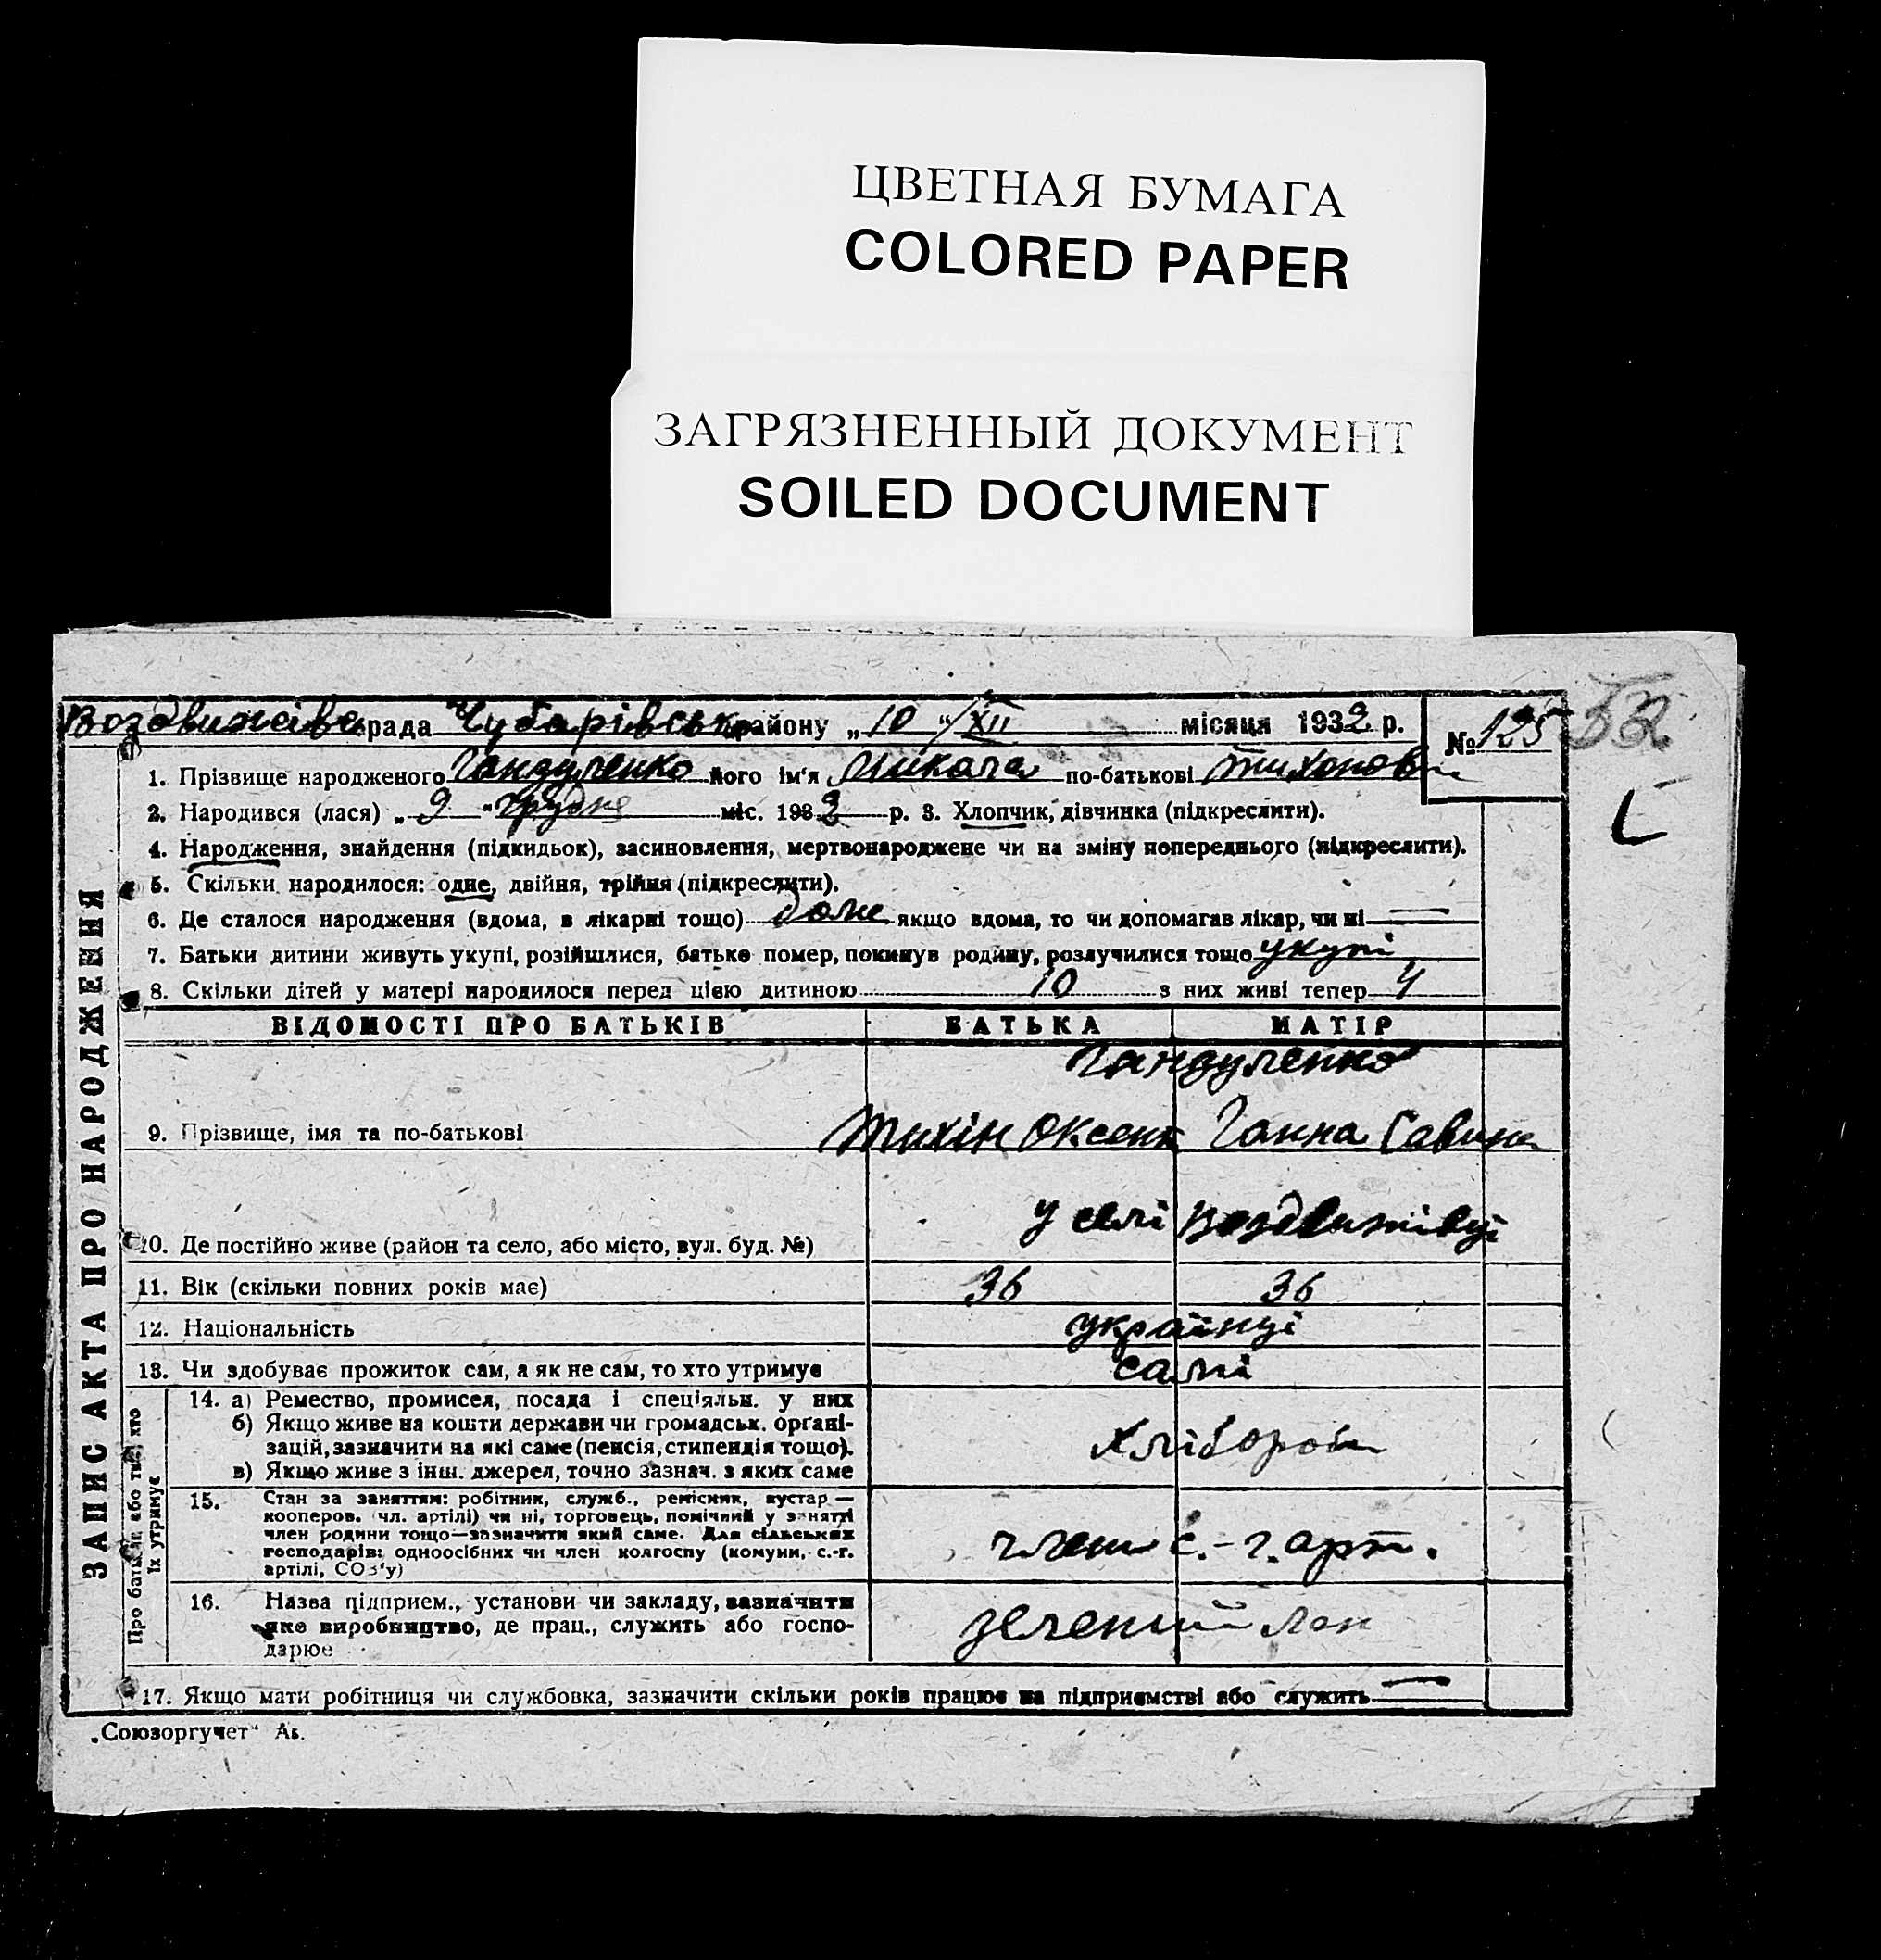 ЦВЕТНАЯ БУМАГА
COLORED PAPER
ЗАГРЯЗНЕННЫЙ ДОКУМЕНТ
SOILED DOCUMENT
рада Чубарівсько району „10 “ XII місяця 1932 р. № 125
1. Прізвище народженого його ім'я по-батькові Тихонов
2. Народився (лася) „ 9 “ грудня міс. 1932 р. 3. Хлопчик, дівчинка (підкреслити).
4. Народження, знайдення (підкидьок), засиновлення, мертвонароджене чи на зміну попереднього (підкреслити).
5. Скільки народилося: одне, двійня, трійня (підкреслити).
6. Де сталося народження (вдома, в лікарні тощо) якщо вдома, то чи допомагав лікар, чи ні —
7. Батьки дитини живуть укупі, розійшлися, батько помер, покинув родину, розлучилися тощо укупі
8. Скільки дітей у матері народилося перед цією дитиною 10 з них живі тепер 4
ВІДОМОСТІ ПРО БАТЬКІВ БАТЬКА МАТІР
9. Прізвище, імя та по-батькові Тихін Оксент Ганна Савина
10. Де постійно живе (район та село, або місто, вул. буд. №) у селі Воздвижівці
11. Вік (скільки повних років має) 36 36
12. Національність українці
13. Чи здобуває прожиток сам, а як не сам, то хто утримує самі
14. а) Ремество, промисел, посада і спеціяльн. у них
б) Якщо живе на кошти держави чи громадськ. органі-
зацій, зазначити на які саме (пенсія, стипендія тощо).
в) Якщо живе з інш. джерел, точно зазнач. з яких саме
Хлібороби
15. Стан за заняттям: робітник, служб., ремісник, кустар —
кооперов. (чл. артілі) чи ні, торговець, помічний у занятті
член родини тощо—зазначити який саме. Для сільських
господарів: одноосібних чи член колгоспу (комуни, с.-г.
артілі, СОЗ'у)
члени с.-г. арт.
16. Назва підприєм., установи чи закладу, зазначити
яке виробництво, де прац., служить або госпо-
дарює
зелений лан
17. Якщо мати робітниця чи службовка, зазначити скільки років працює на підприємстві або служить —
ЗАПИС АКТА ПРО НАРОДЖЕННЯ
Про батьків або тих, хто
їх утримує
„Союзоргучет“